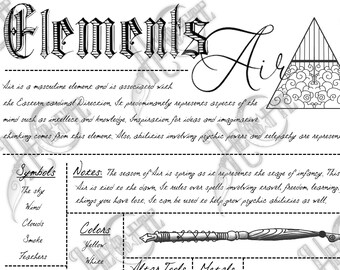 Elements
Air
Air is a masculine element and is associated with
the Eastern cardinal Direction. It predominantly represents aspects of the
mind such as intellect and knowledge. Inspiration for ideas and imaginative
thinking comes from this element. Also, abilities involving psychic powers and telepathy are represented
Symbols
The sky
Wind
Clouds
Smoke
Feathers
Notes: The season of Air is spring as it represents the stage of infancy. This
Air is tied to the dawn. It rules over spells involving travel, freedom, learning,
things you have lose. It can be used to help grow psychic abilities as well.
Colors
Yellow
White
Altar Tools
Metals